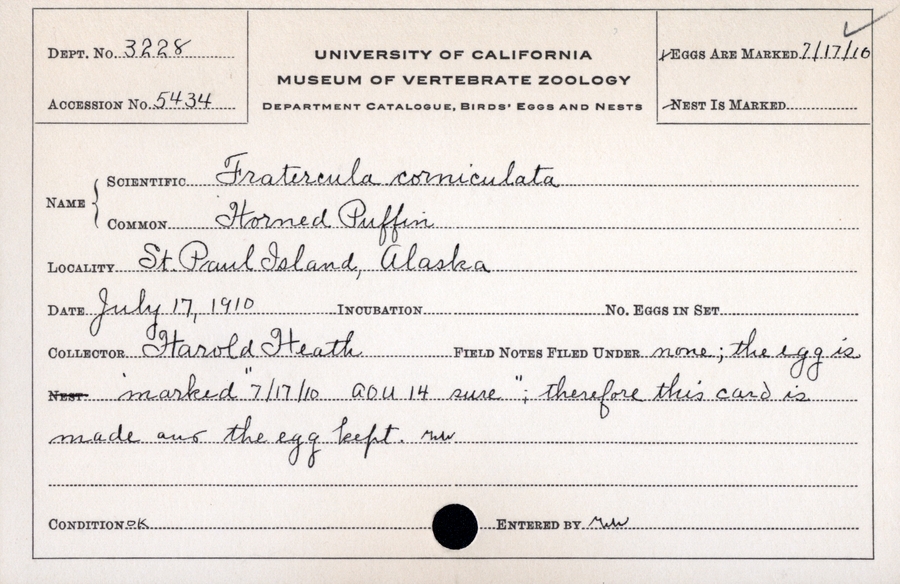 DEPT. NO. 3228
ACCESSION NO. 5434
UNIVERSITY OF CALIFORNIA
MUSEUM OF VERTEBRATE ZOOLOGY
DEPARTMENT CATALOGUE, BIRDS' EGGS AND NESTS
EGGS ARE MARKED 7/17/10
NEST IS MARKED
NAME
SCIENTIFIC Fratercula corniculata
COMMON Horned Puffin
LOCALITY St. Paul Island, Alaska
DATE July 17, 1910 INCUBATION NO. EGGS IN SET
COLLECTOR Harold Heath FIELD NOTES FILED UNDER none; the egg is
NEST marked "7/17/10 AOU 14 sure"; therefore this card is
made and the egg kept.
CONDITION OK ENTERED BY